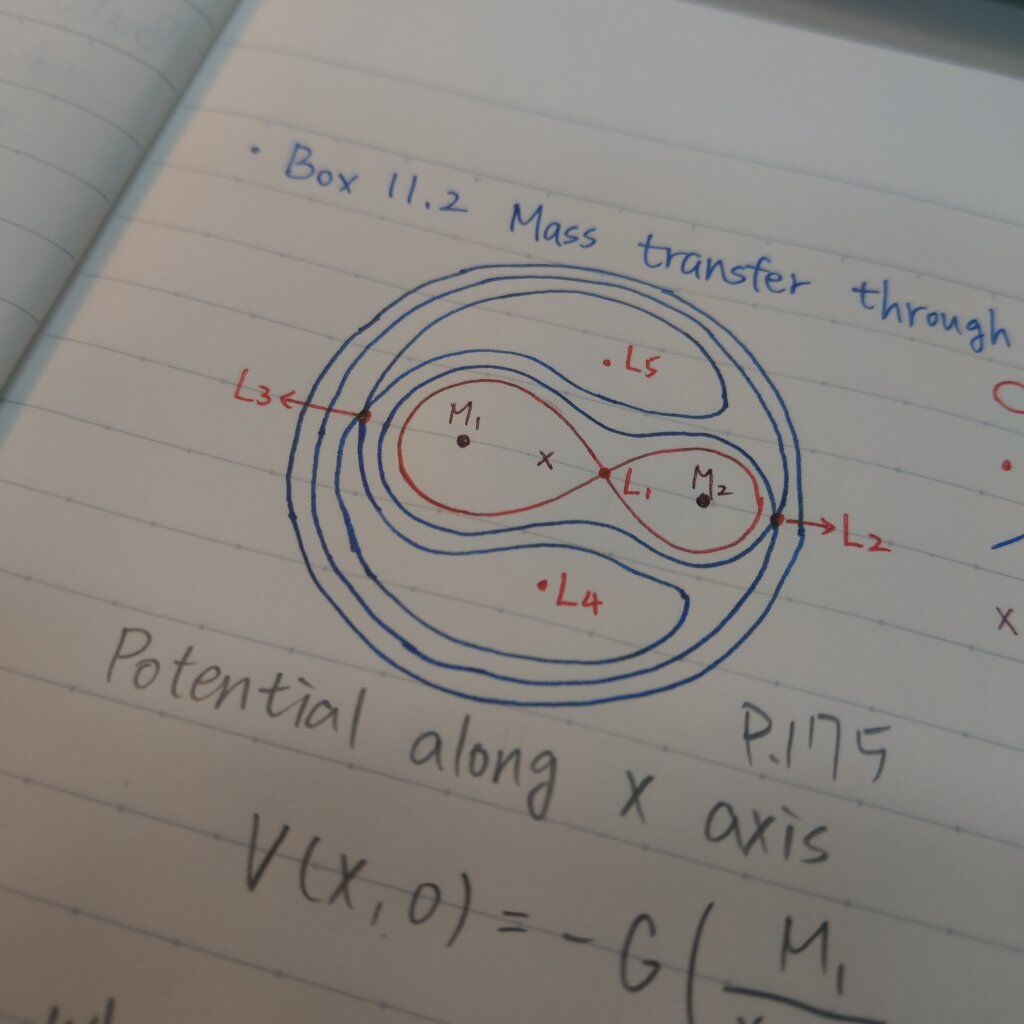 • Box 11.2 Mass transfer through
L5
L3
M1
x
L1
M2
L2
L4
x
Potential along x axis
P.175
V(x,0) = -G( M1